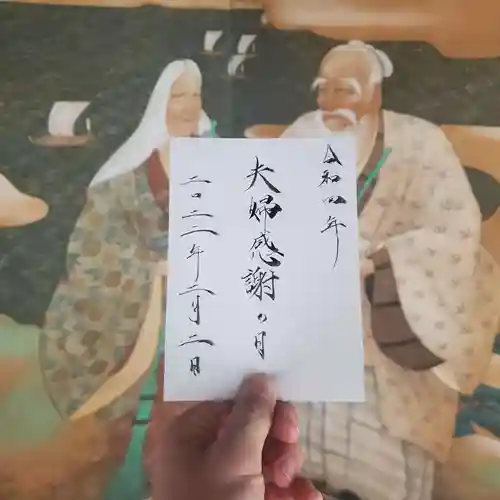 令和四年
夫婦感謝の日
二〇二二年二月二日